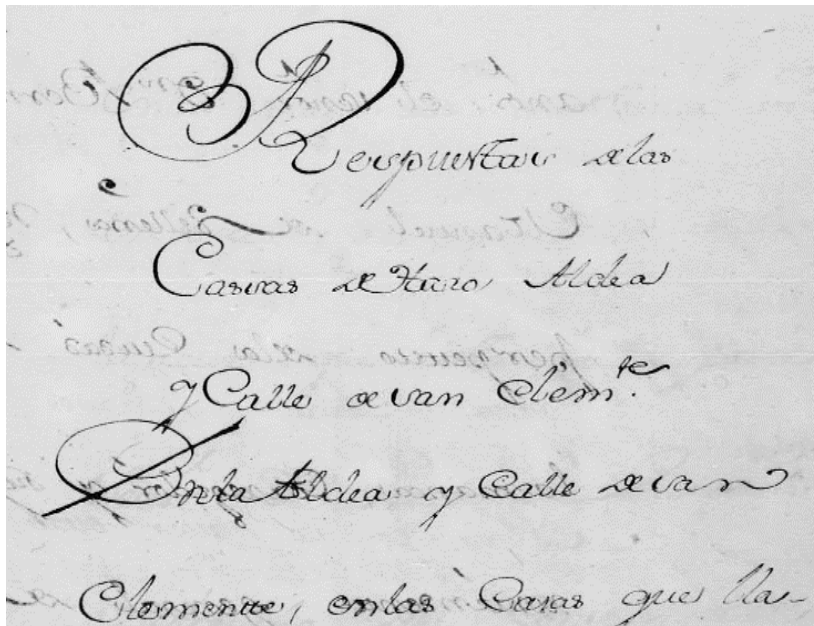 Respuestas de las
Casas de Haro Aldea
y Calle de san Clem.te
En la Aldea y Calle de san
Clemente, en las Casas que lla-